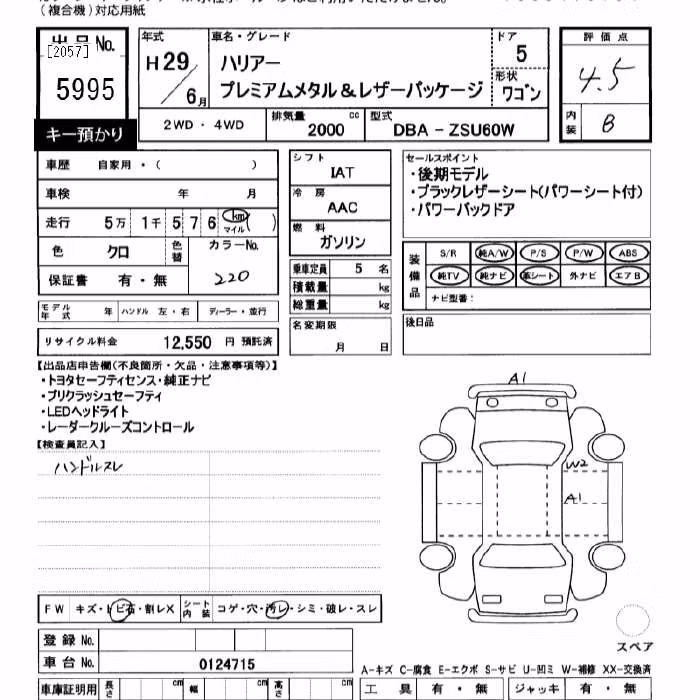 (複合機)対応用紙
出品No.
[2057]
5995
キー預かり
年式
H29/6月
車名・グレード
ハリアー
プレミアムメタル&レザーパッケージ
ドア
5
形状
ワゴン
評価点
4.5
内装
B
2WD・4WD
排気量
2000 cc
型式
DBA-ZSU60W
車歴 自家用・( )
車検 年 月
走行 5万 1千 5 7 6 km マイル ( )
色 クロ 色替 カラーNo. 220
保証書 有・無
シフト
IAT
冷房
AAC
燃料
ガソリン
乗車定員 5 名
積載量 kg
総重量 kg
セールスポイント
・後期モデル
・ブラックレザーシート(パワーシート付)
・パワーバックドア
装備品
S/R 純A/W P/S P/W ABS
純TV 純ナビ 革シート 外ナビ エアB
ナビ型番:
モデル年式 年 ハンドル 左・右 ディーラー・並行
リサイクル料金 12,550 円 預託済
名変期限
月 日
後日品
【出品店申告欄(不良箇所・欠品・注意事項等)】
・トヨタセーフティセンス・純正ナビ
・プリクラッシュセーフティ
・LEDヘッドライト
・レーダークルーズコントロール
【検査員記入】
ハンドルスレ
A1
W2
A1
FW キズ・トビ石・割レX シート内装 コゲ・穴・汚レ・シミ・破レ・スレ
スペア
登録No.
車台No. 0124715
A-キズ C-腐食 E-エクボ S-サビ U-凹ミ W-補修 XX-交換済
車庫証明用 長さ cm 幅 cm 高さ cm
工具 有・無 ジャッキ 有・無